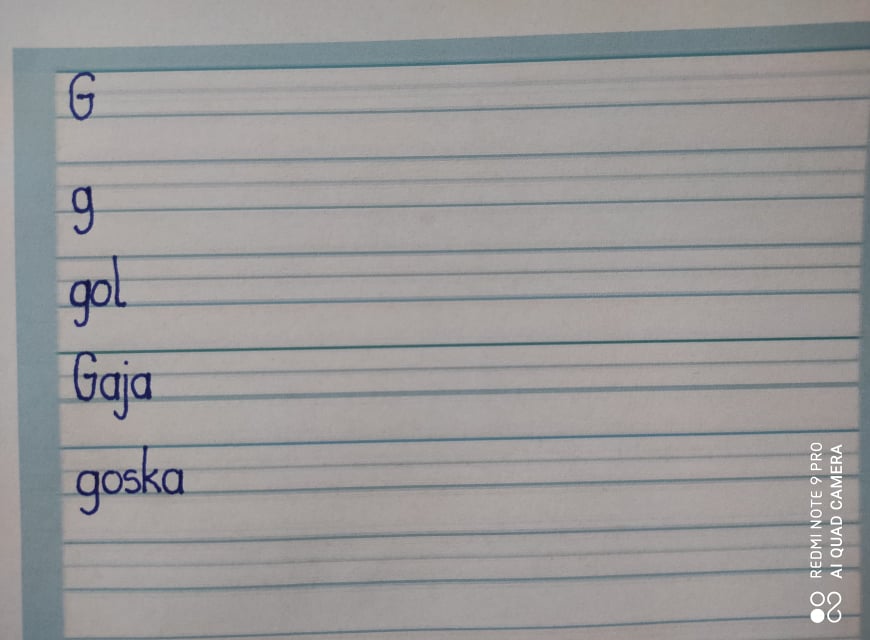 G
g
gol
Gaja
goska
REDMI NOTE 9 PRO
AI QUAD CAMERA